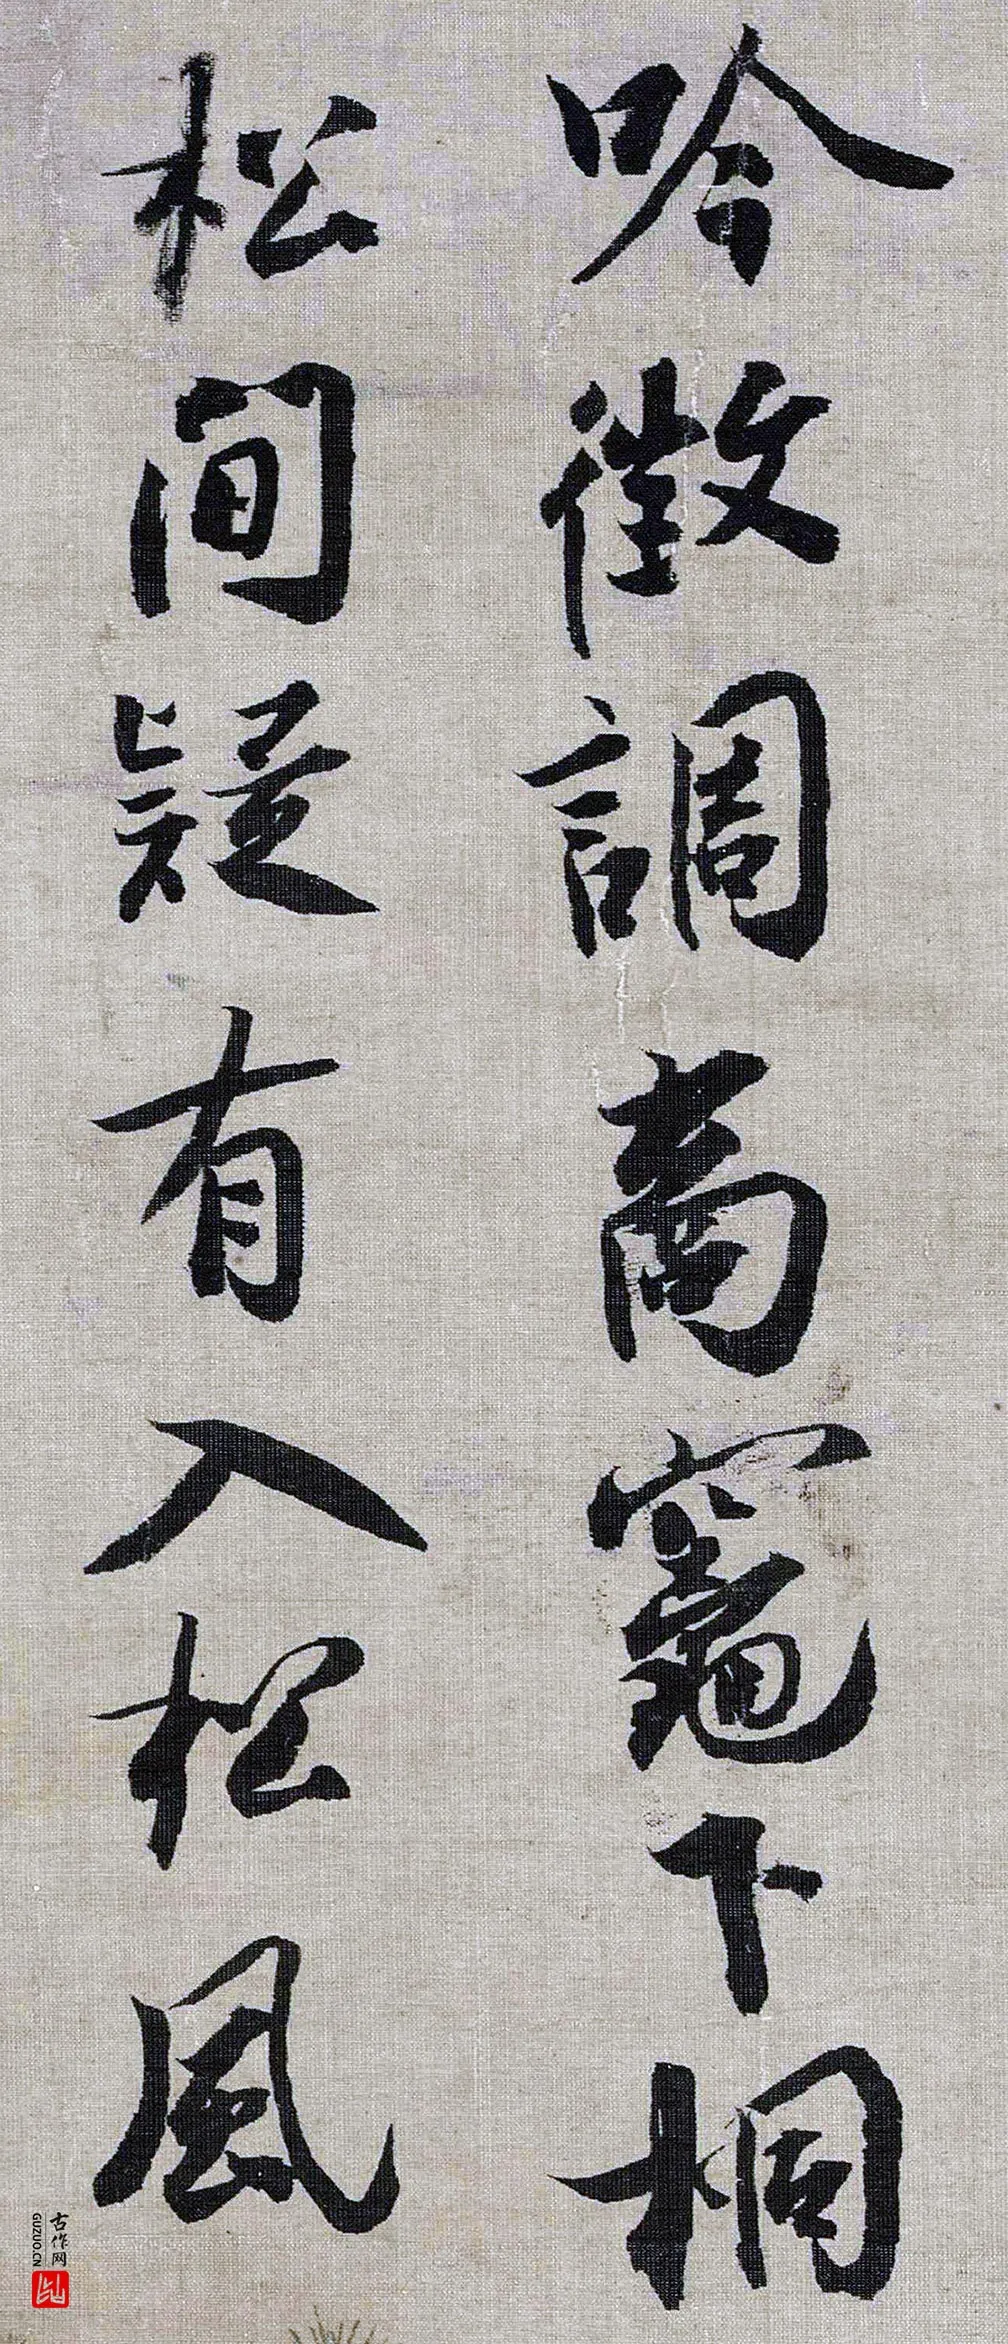 吟徵調商竈下桐
松間疑有入松風
古作网
GUZUO.CN